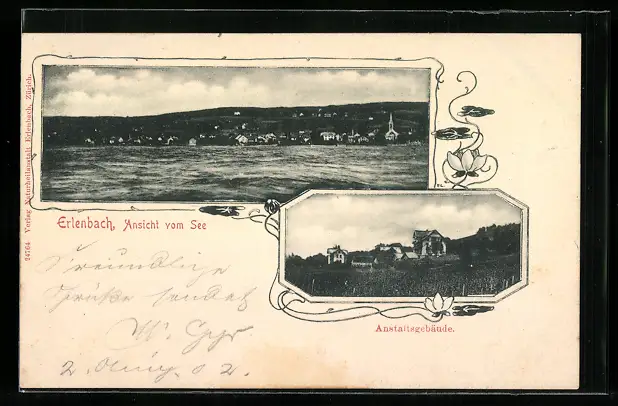 24764 Verlag Naturheilanstalt Erlenbach, Zürich.
Erlenbach, Ansicht vom See
Anstaltsgebäude.
Freundliche
Grüße sendet
2. Aug. 02.